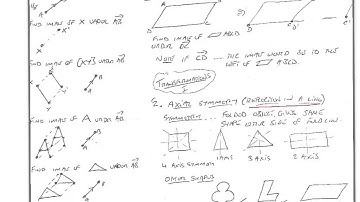 FIND IMAGE OF X UNDER AB
X
X'
A
B
FIND IMAGE OF [XY] UNDER AB
FIND IMAGE OF A UNDER AB
FIND IMAGE OF UNDER AB
A
B
D
C
2)
FIND IMAGE OF ABCD
UNDER BC
NOTE IF CD --- THE IMAGE WOULD BE TO THE
LEFT OF ABCD.
TRANSFORMATIONS
2. AXIAL SYMMETRY (REFLECTION IN A LINE)
SYMMETRY FOLDED OBJECT, GIVES SAME
SHAPE EITHER SIDE OF FOLD LINE
4 AXIS SYMMETRY
1 AXIS
3 AXIS
2 AXIS
OTHER SHAPES